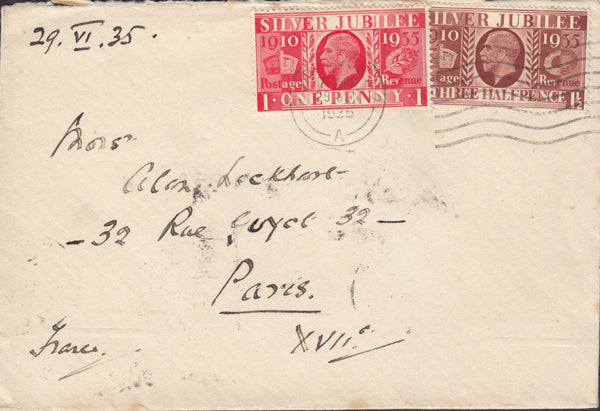 29. VI. 35.
SILVER JUBILEE
1910 1935
Postage Revenue
1 · ONE PENNY · 1
SILVER JUBILEE
10 1935
tage Revenue
THREE HALFPENCE 1½
29
1935
A
Alan Lockhart
- 32 Rue 32 -
Paris.
XVIIe
France